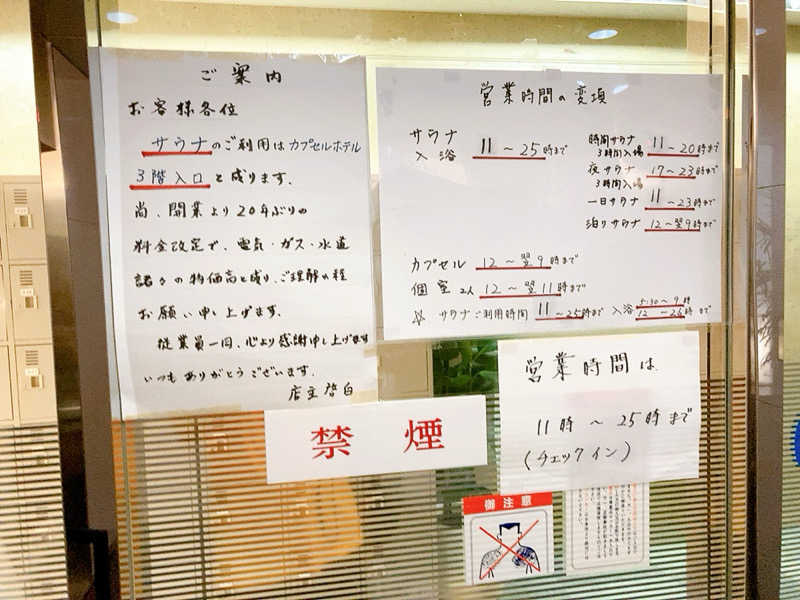 ご案内
お客様各位
サウナのご利用はカプセルホテル
3階入口と成ります。
尚、開業より20年ぶりの
料金改定で、電気・ガス・水道
諸々の物価高と成り、ご理解の程
お願い申し上げます。
従業員一同、心より感謝申し上げます
いつもありがとうございます。
店主啓白
営業時間の変項
サウナ
入浴 11～25時まで
時間サウナ
3時間入場 11～20時まで
夜サウナ
3時間入場 17～23時まで
一日サウナ 11～23時まで
泊りサウナ 12～翌9時まで
カプセル 12～翌9時まで
個室2人 12～翌11時まで
☆ サウナご利用時間 11～25時まで 入浴 5:30～9時
12～26時まで
営業時間は
11時～25時まで
(チェックイン)
禁煙
御注意